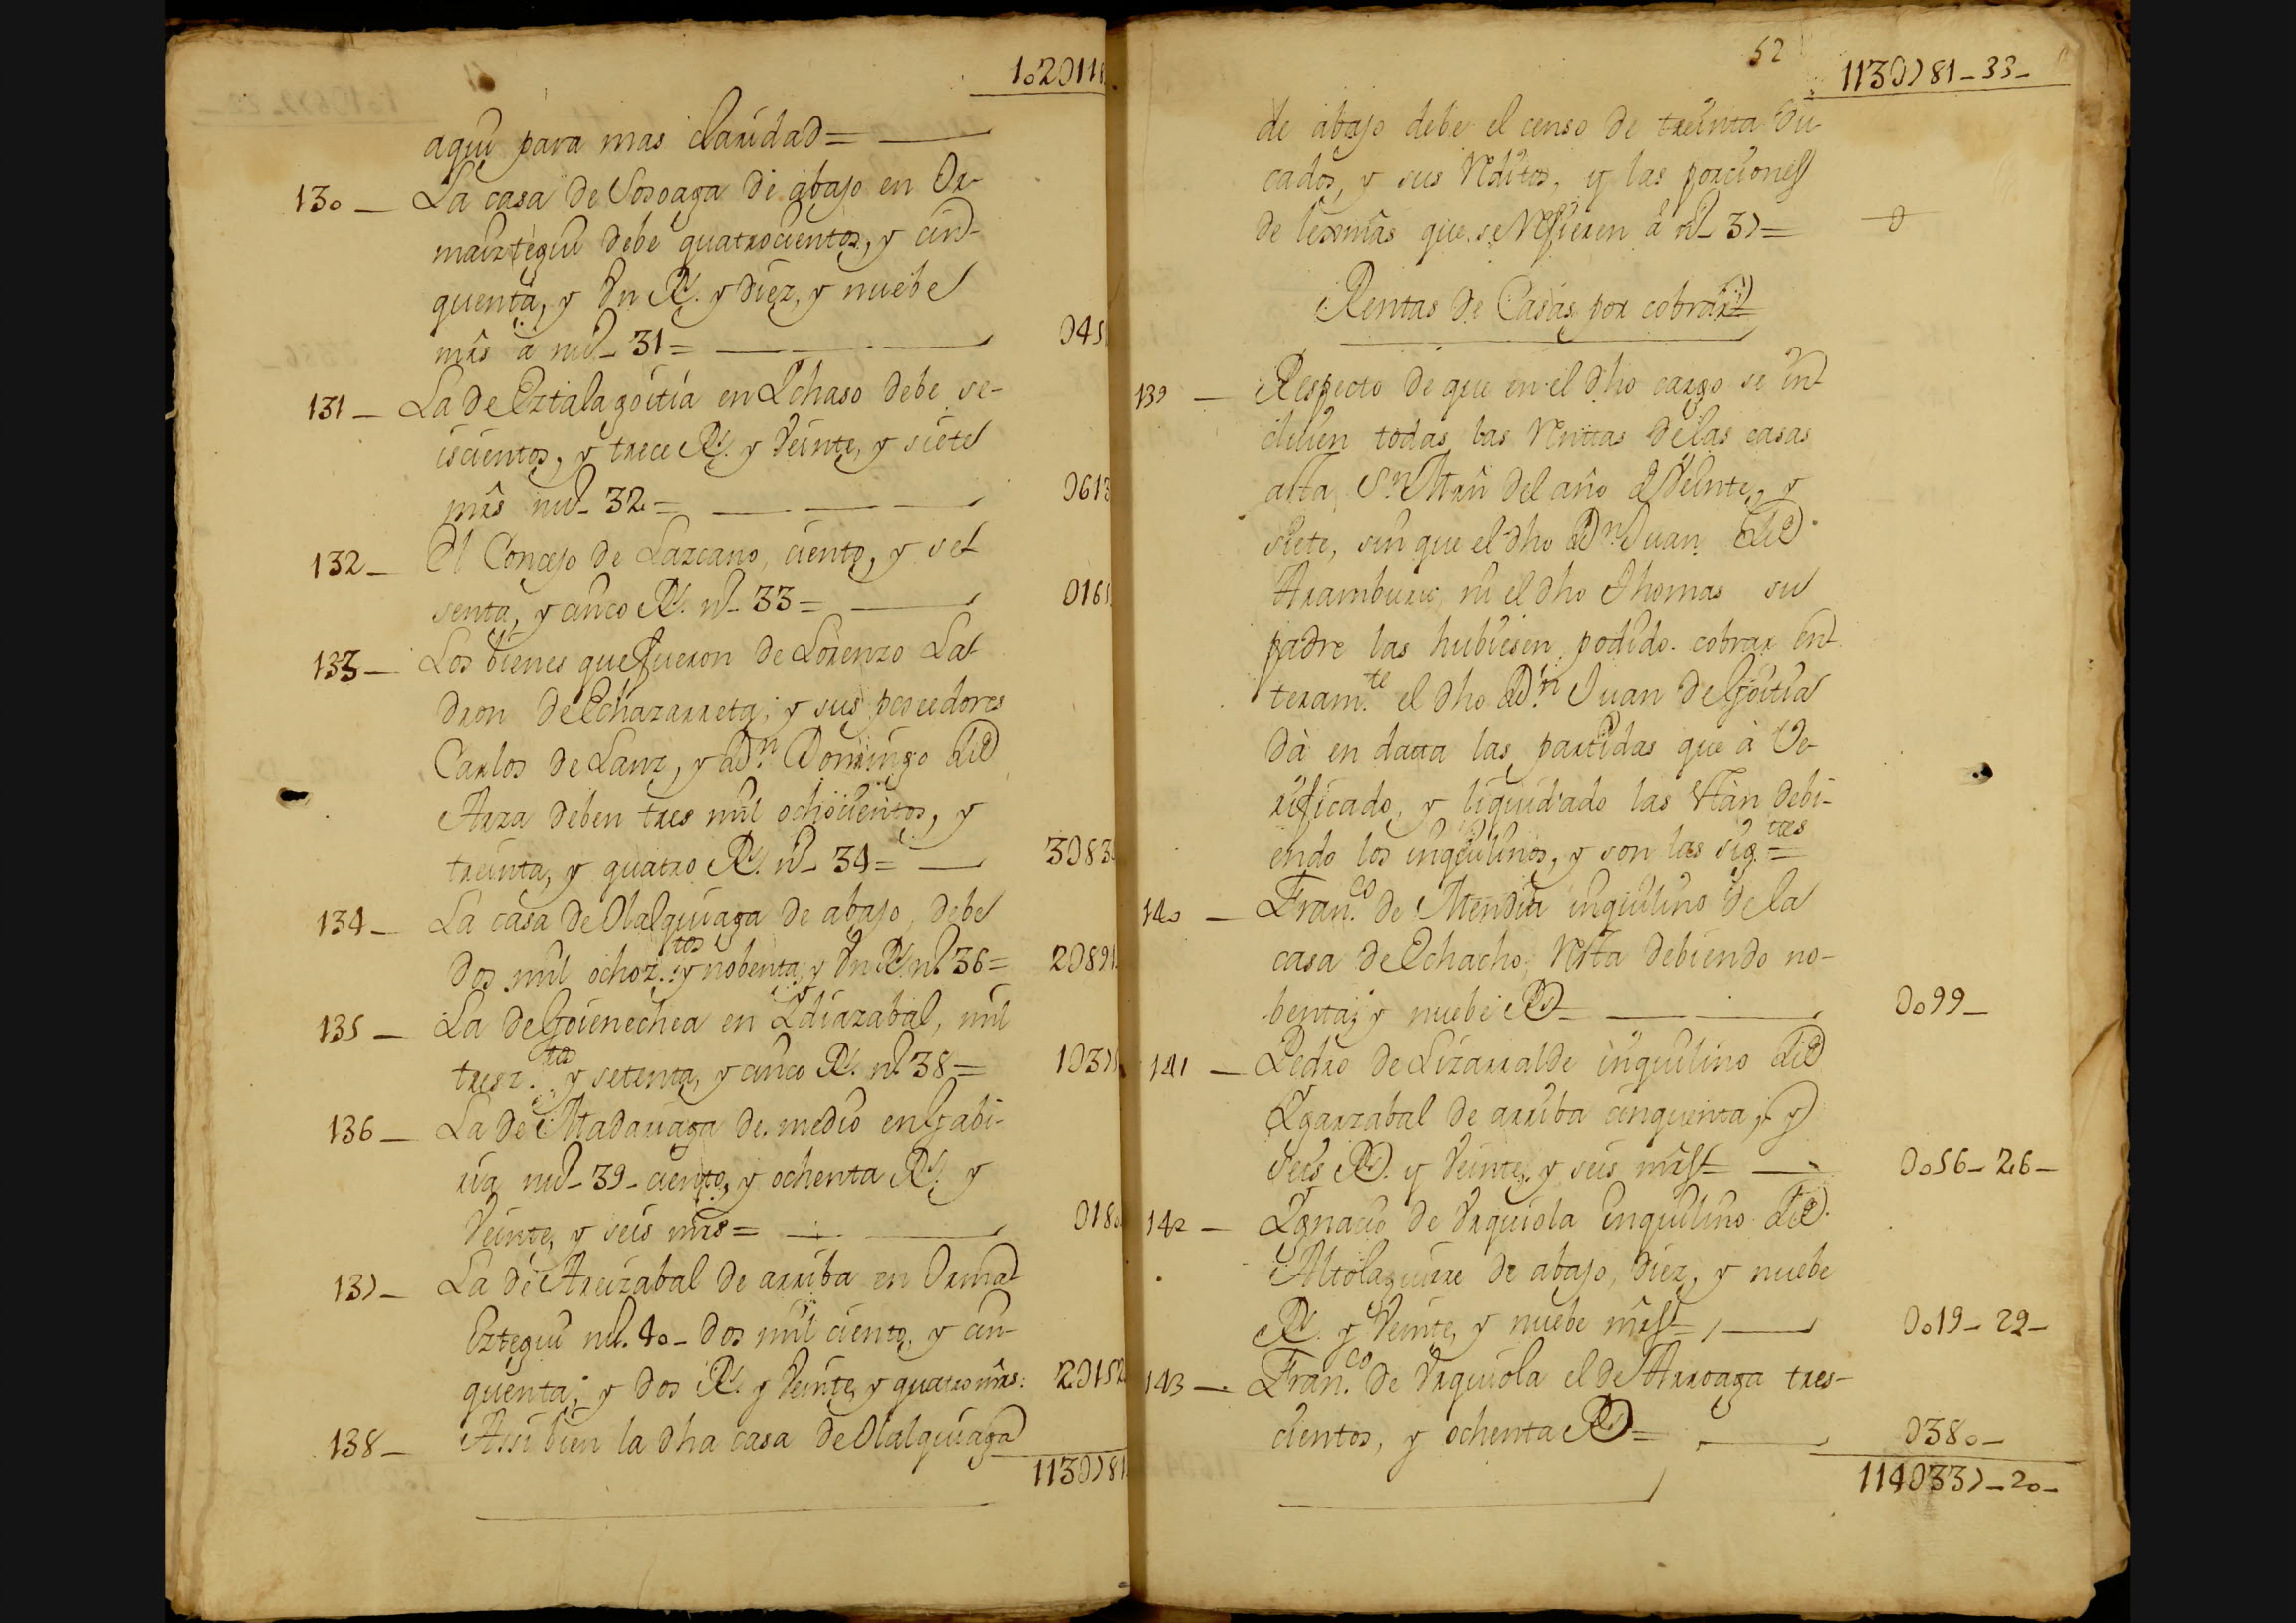 102D11
aqui para mas claridad=
130 _ La casa de Sosoaga de abajo en Or-
maiztegui debe quatrocientos, y cin-
quenta, y un Rs. y diez, y nuebe
mrs a nu_ 31= D45
131 _ La de Eztala goitia en Ichaso debe se-
iscientos, y trece Rs. y veinte, y siete
mrs nu_ 32= D613
132 _ El Concejo de Lazcano, ciento, y se
senta, y cinco Rs. n_ 33= D165
133 _ Los bienes que fueron de Lorenzo La
dron de Echazarreta, y sus poceedores
Carlos de Lanz, y Dn. Domingo de
Arza deben tres mil ochocientos, y
treinta, y quatro Rs. n_ 34= 3D83
134 _ La casa de Olalquiaga de abajo, debe
dos mil ochoz.tos y nobenta, y un Rs. n. 36= 2D891
135 _ La de Goienechea en Idiazabal, mil
tresz.tos y setenta, y cinco Rs. n. 38= 1D37
136 _ La de Madariaga de medio en Gabi-
ria nu_ 39_ ciento, y ochenta Rs. y
veinte, y seis mrs= D180
137 _ La de Areizabal de arriba en Orma
Eztegui nu. 40_ dos mil ciento, y cin-
quenta, y dos Rs. y veinte, y quatro mrs: 2D152
138 _ Assi bien la dha casa de Olalquiaga
113D781
52
113D781_33_
de abajo debe el censo de treinta du-
cados, y sus Reditos, y las porciones
de lexomas que se Refieren a nu_ 37= D
Rentas de Casas por cobrar=
139 _ Respecto de que en el dho cargo se in
cluien todas las Rentas de las casas
asta Sn. Mrn del año de veinte, y
siete, sin que el dho Dn. Juan de
Aramburu, ni el dho Thomas su
padre las hubiesen podido cobrar en
teram.te el dho Dn. Juan de Goitia
dà en datta las partidas que à Ve-
rificado, y liquidado las Stàn debi-
endo los inquilinos, y son las sig.tes=
140 _ Fran.co de Mendia inquilino de la
casa de Echacho, Rsta debiendo no-
benta, y nuebe Rs= D099_
141 _ Pedro de Lizarralde inquilino de
Igarzabal de arriba cinquenta, y
seis Rs. y veinte, y seis mrs= D056_26_
142 _ Ignacio de Urquiola inquilino de
Altolaguirre de abajo, diez, y nuebe
Rs. y veinte, y nuebe mrs= D019_29_
143 _ Fran.co de Urquiola el de Arroaga tres-
cientos, y ochenta Rs= D380_
114D337_20_